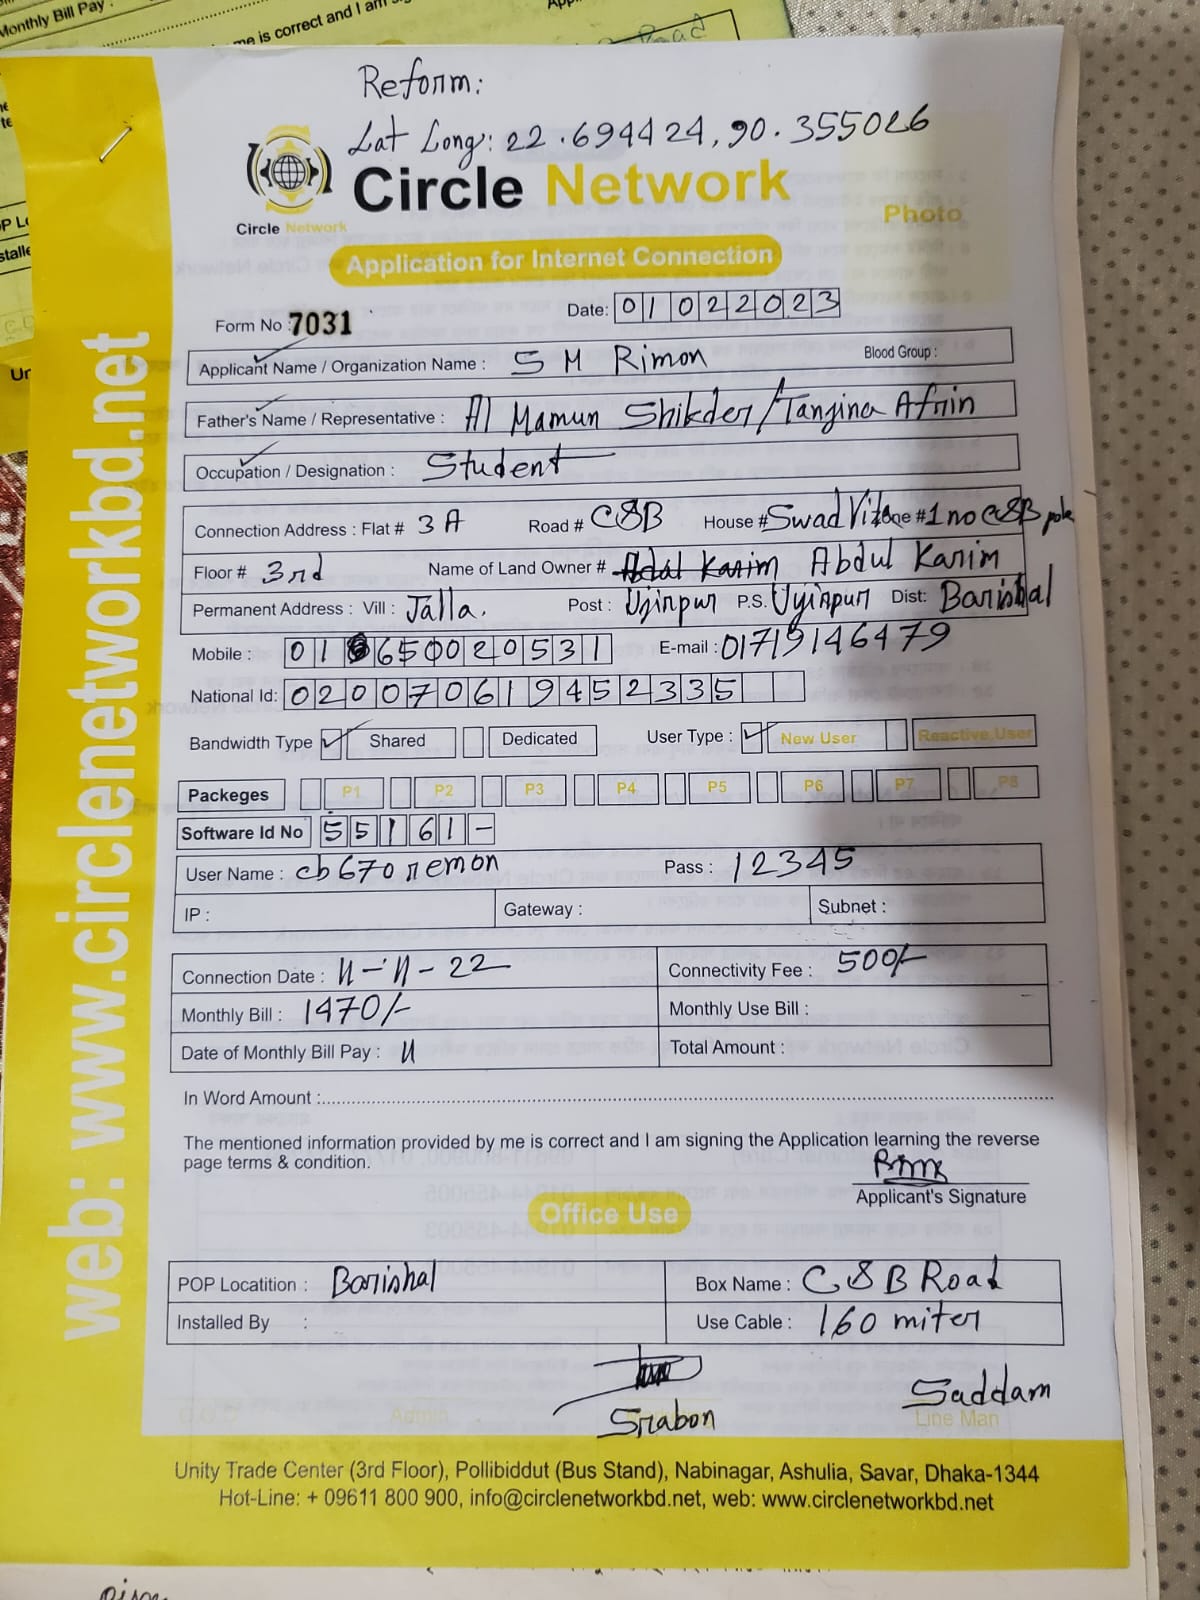 Monthly Bill Pay :
me is correct and I am
Road
Reform:
Lat Long: 22.694424, 90.355026
Circle Network
Circle Network
Photo
Application for Internet Connection
Form No : 7031
Date: 01022023
Applicant Name / Organization Name : S M Rimon Blood Group :
Father's Name / Representative : Al Mamun Shikder/Tanjina Afrin
Occupation / Designation : Student
Connection Address : Flat # 3 A Road # C&B House # Swad Vi Zone # 1 no C&B pole
Floor # 3rd Name of Land Owner # Abdul Karim
Permanent Address : Vill : Jalla. Post : Ujirpur P.S. Ujirpur Dist: Barishal
Mobile : 01 650020531 E-mail : 01719146479
National Id: 020070619452335
Bandwidth Type Shared Dedicated User Type : New User Reactive User
Packeges P1 P2 P3 P4 P5 P6 P7 P8
Software Id No 55161-
User Name : cb670remon Pass : 12345
IP : Gateway : Subnet :
Connection Date : 11-11-22 Connectivity Fee : 500/-
Monthly Bill : 1470/- Monthly Use Bill :
Date of Monthly Bill Pay : 11 Total Amount :
In Word Amount :
The mentioned information provided by me is correct and I am signing the Application learning the reverse
page terms & condition.
Applicant's Signature
Office Use
POP Locatition : Barishal Box Name : C&B Road
Installed By : Use Cable : 160 miter
Srabon Saddam
Admin Line Man
Unity Trade Center (3rd Floor), Pollibiddut (Bus Stand), Nabinagar, Ashulia, Savar, Dhaka-1344
Hot-Line: + 09611 800 900, info@circlenetworkbd.net, web: www.circlenetworkbd.net
web: www.circlenetworkbd.net